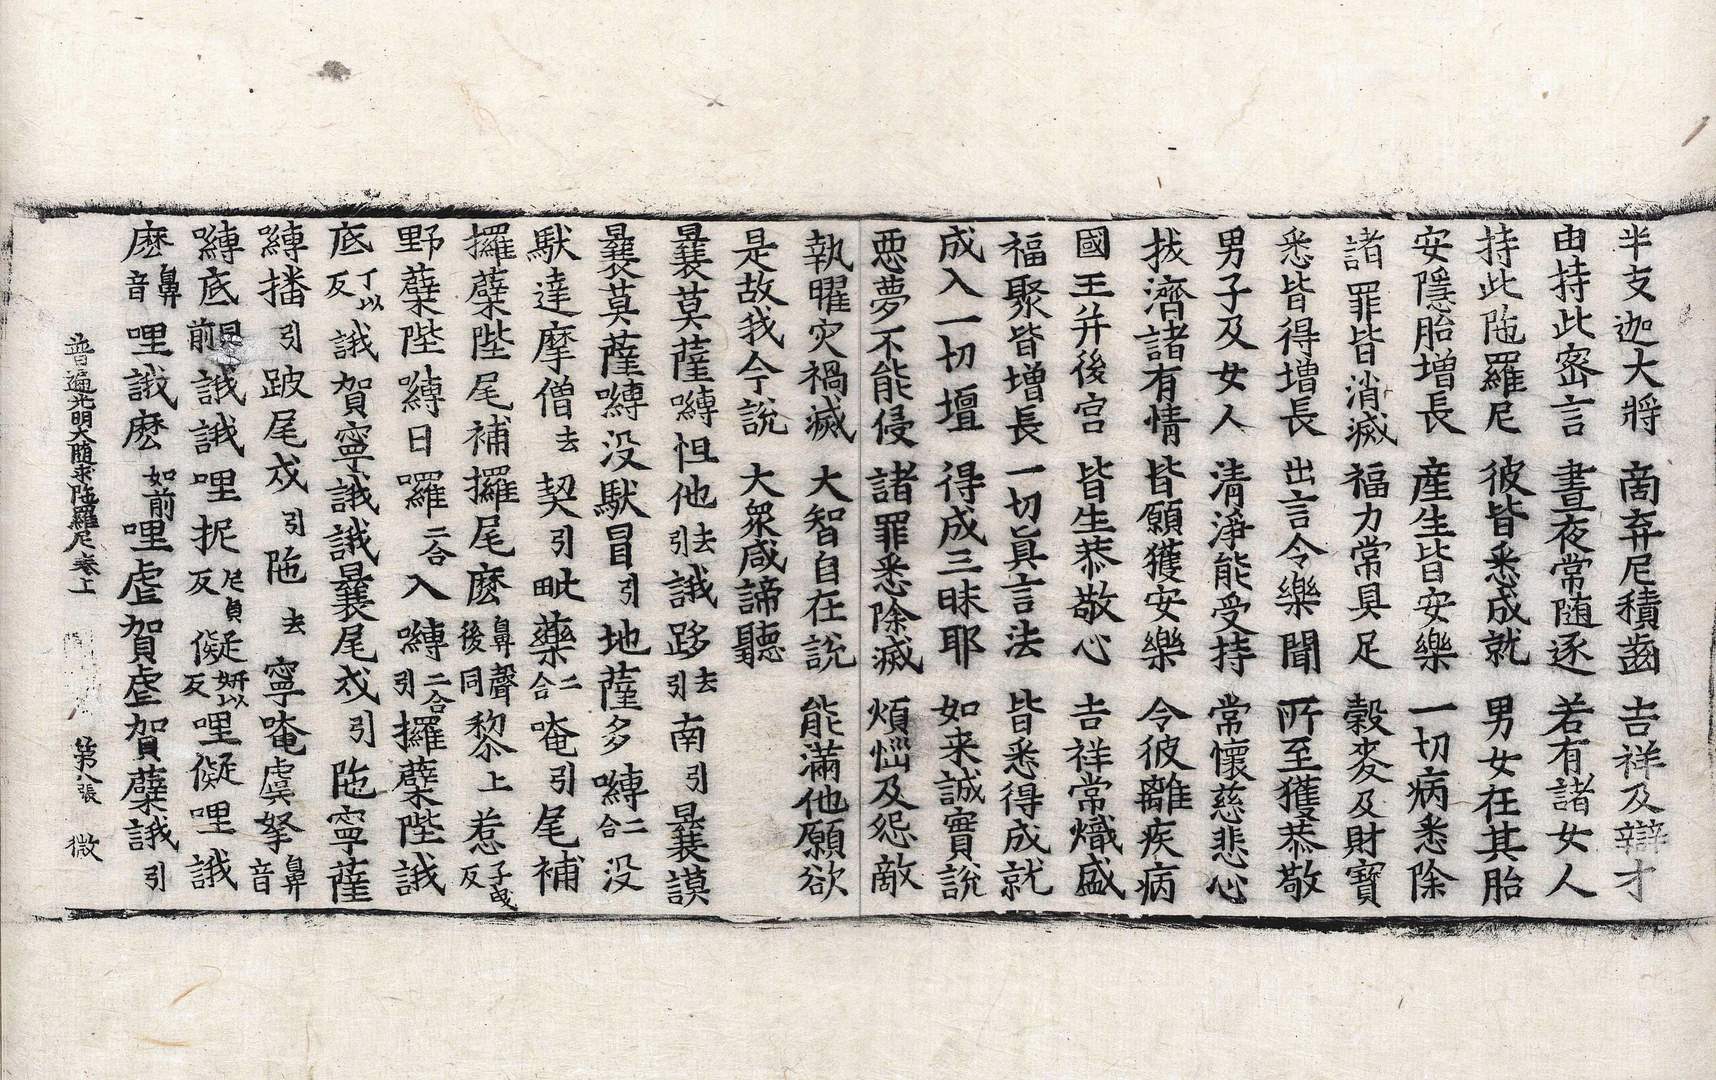 半支迦大將　啇弃尼積齒　吉祥及辯才
由持此密言　晝夜常随逐　若有諸女人
持此陁羅尼　彼皆悉成就　男女在其胎
安隱胎增長　產生皆安樂　一切病悉除
諸罪皆消滅　福力常具足　穀麥及財寶
悉皆得增長　出言令樂聞　所至獲恭敬
男子及女人　清淨能受持　常懷慈悲心
拔濟諸有情　皆願獲安樂　令彼離疾病
國王并後宮　皆生恭敬心　吉祥常熾盛
福聚皆增長　一切眞言法　皆悉得成就
成入一切壇　得成三昧耶　如来誠實說
惡夢不能侵　諸罪悉除滅　煩惱及怨敵
執曜灾禍滅　大智自在說　能滿他願欲
是故我今說　大衆咸諦聽
曩莫薩嚩怛他去引誐跢去引南引曩謨
曩莫薩嚩没馱冒引地薩多嚩二合没
馱達摩僧去契引毗藥二合唵引尾補
攞蘖陛尾補攞尾麽鼻聲後同黎上惹子曳反
野蘖陛嚩日囉二合入嚩二合引攞蘖陛誐
底丁以反誐賀寧誐誐曩尾戍引陁寧薩
嚩播引跛尾戍引陁去寧唵虞拏鼻音
嚩底前見誐誐哩抳尼貞反儗妍以反哩儗哩誐
麽鼻音哩誐麽如前哩虐賀虐賀蘖誐引
普遍光明大随求陁羅尼卷上　第八張　微